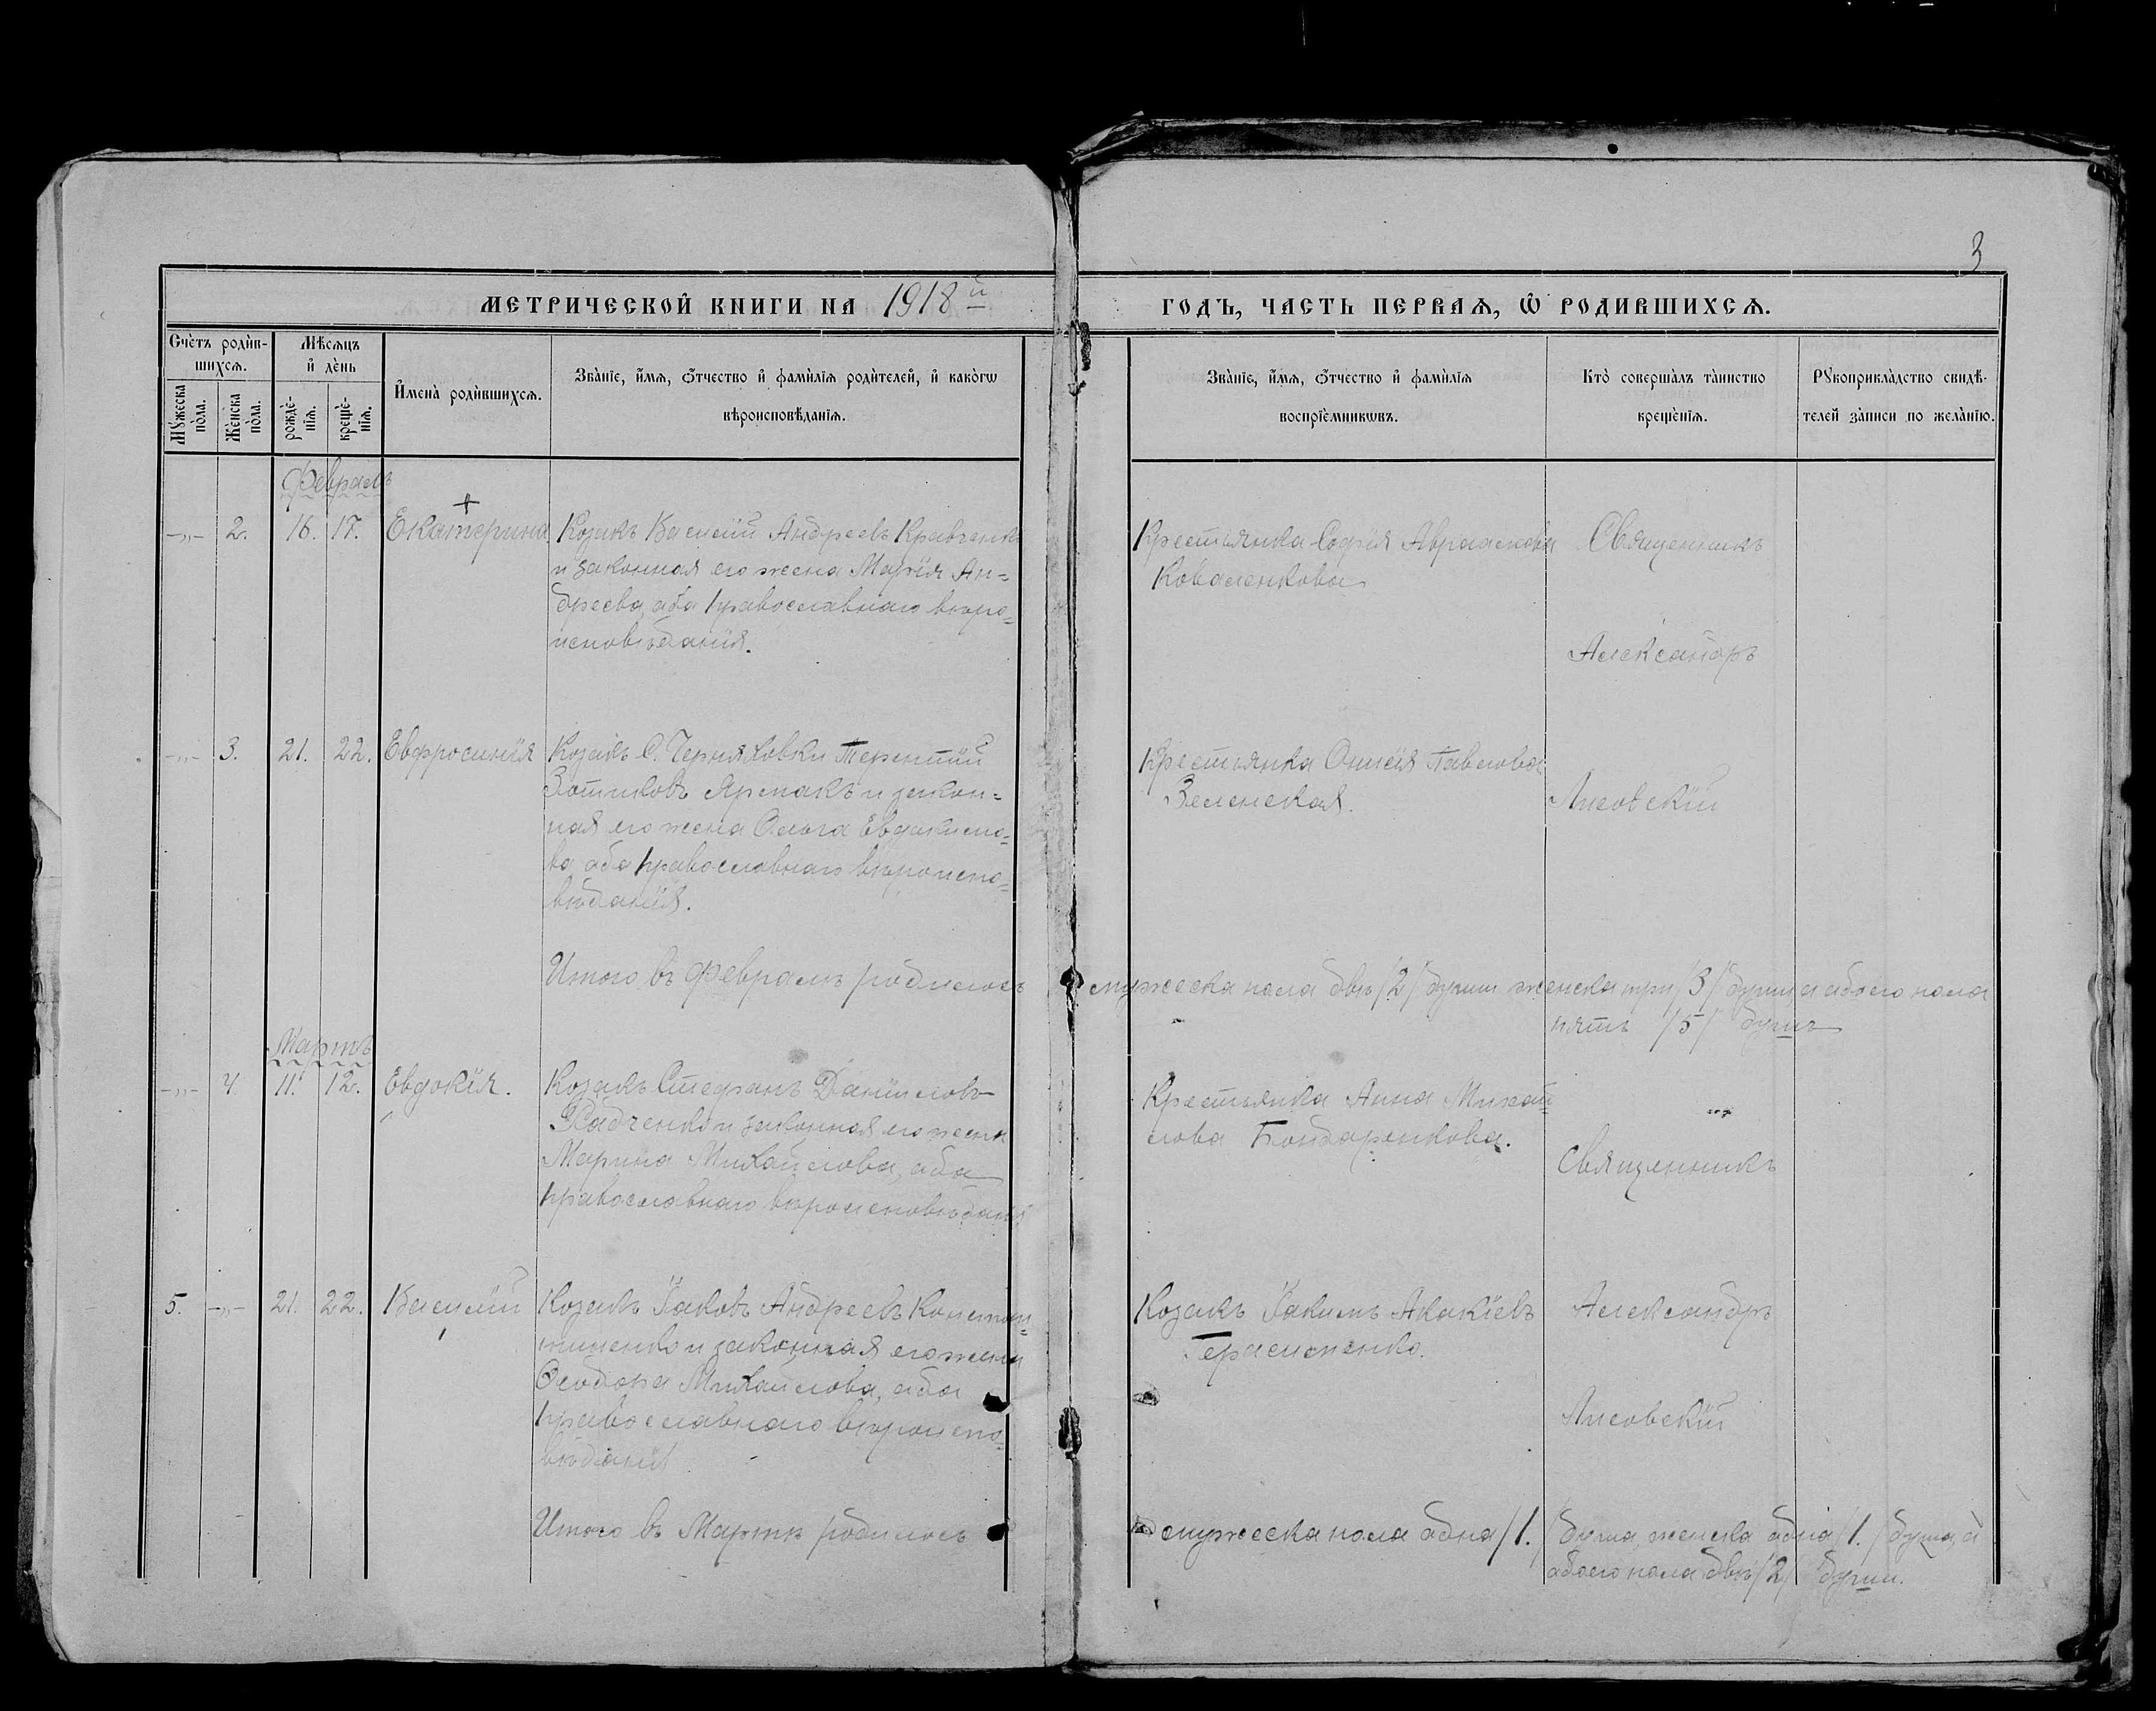 3
МЕТРИЧЕСКОЙ КНИГИ НА 1918й ГОДЪ, ЧАСТЬ ПЕРВАЯ, Ѿ РОДИВШИХСЯ.
Счетъ родив-
шихся.
Мѣсяцъ
и день
Мꙋжеска
пола.
Женска
пола.
рожде-
нія.
креще-
нія.
Имена родившихся.
Званіе, имя, ѻтчество и фамилія родителей, и какогѡ
вѣроисповѣданія.
Званіе, имя, ѻтчество и фамилія
воспріемникѡвъ.
Кто совершалъ таинство
крещенія.
Рꙋкоприкладство свидѣ-
телей записи по желанію.
Февраль
-„- 2. 16. 17. Екатерина Козакъ Василій Андреевъ Кравченко
и законная его жена Марія Ан=
дреева, оба православнаго вѣро=
исповѣданія.
Крестьянка Софія
Коваленкова
Священникъ
Александръ
Лисовскій
-„- 3. 21. 22. Евфросинія Козакъ С. Черняховки Терентій
Зотиковъ Ярмакъ и закон=
ная его жена Ольга Евдокимо=
ва оба православнаго вѣроиспо=
вѣданія.
Крестьянка Павлова
Зеленская.
Итого въ Февралѣ родилось мужеска пола двѣ /2/ души женска три /3/ души а обоего пола
пять /5/ душъ
Мартъ
-„- 4. 11. 12. Евдокія. Козакъ Стефанъ Даніиловъ
Радченко и законная его жена
Марина Михайлова, оба
православнаго вѣроисповѣданія
Крестьянка Анна Михай=
лова Бондаренкова.
Священникъ
Александръ
Лисовскій
5. -„- 21. 22. Василій Козакъ Іаковъ Андреевъ Констан=
тиненко и законная его жена
Ѳеодора Михайлова, оба
православнаго вѣроиспо=
вѣданія
Козакъ Іакимъ Акакіевъ
Герасименко.
Итого въ Мартѣ родилось мужеска пола одна /1./ душа, женска одна /1./ душа, а
обоего пола двѣ /2/ души.